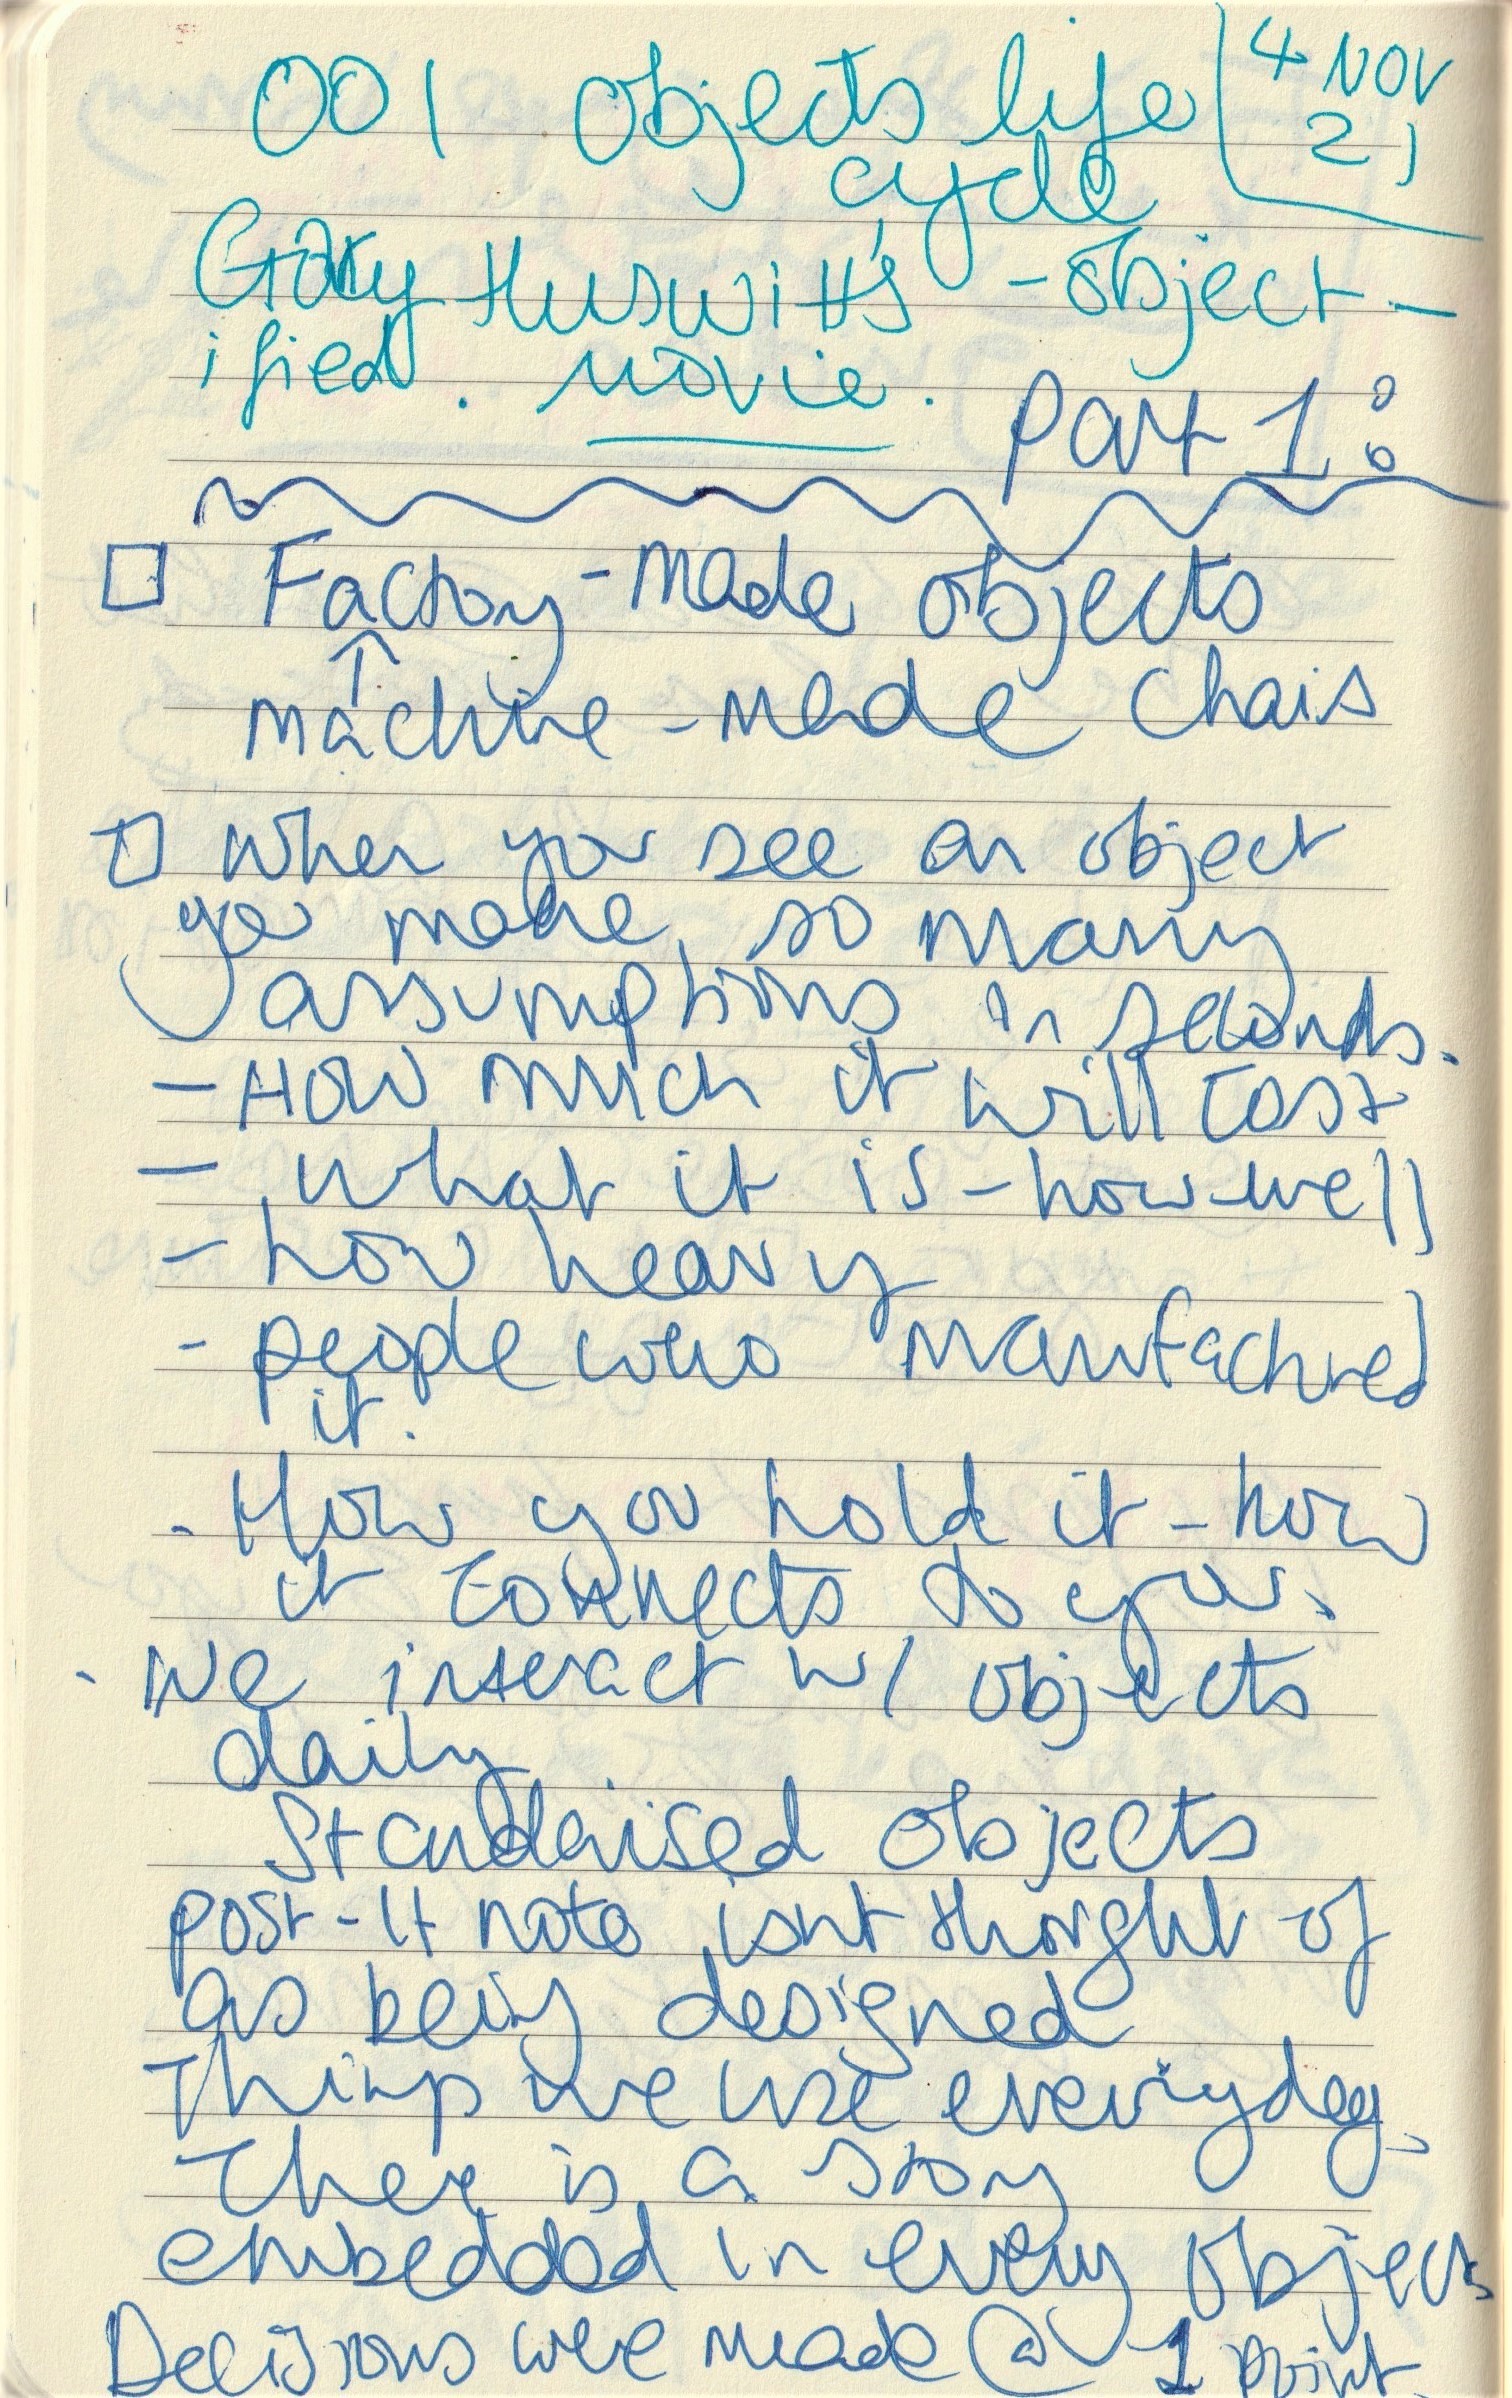 001 Objects life
cycle
4 NOV
21
Gary Huswitt's - object-
ified. movie.
Part 1:
Factory-made objects
↑
machine-made chais
When you see an object
you make so many
assumptions in seconds.
- How much it will cost
- what it is - how well
- how heavy
- people who manufactured
it.
- How you hold it - how
it connects to you.
- We interact w/ objects
daily
Standarised objects
post-it note isnt thought of
as being designed
Things we use everyday
There is a story
embedded in every object
Decisions were made @ 1 point.